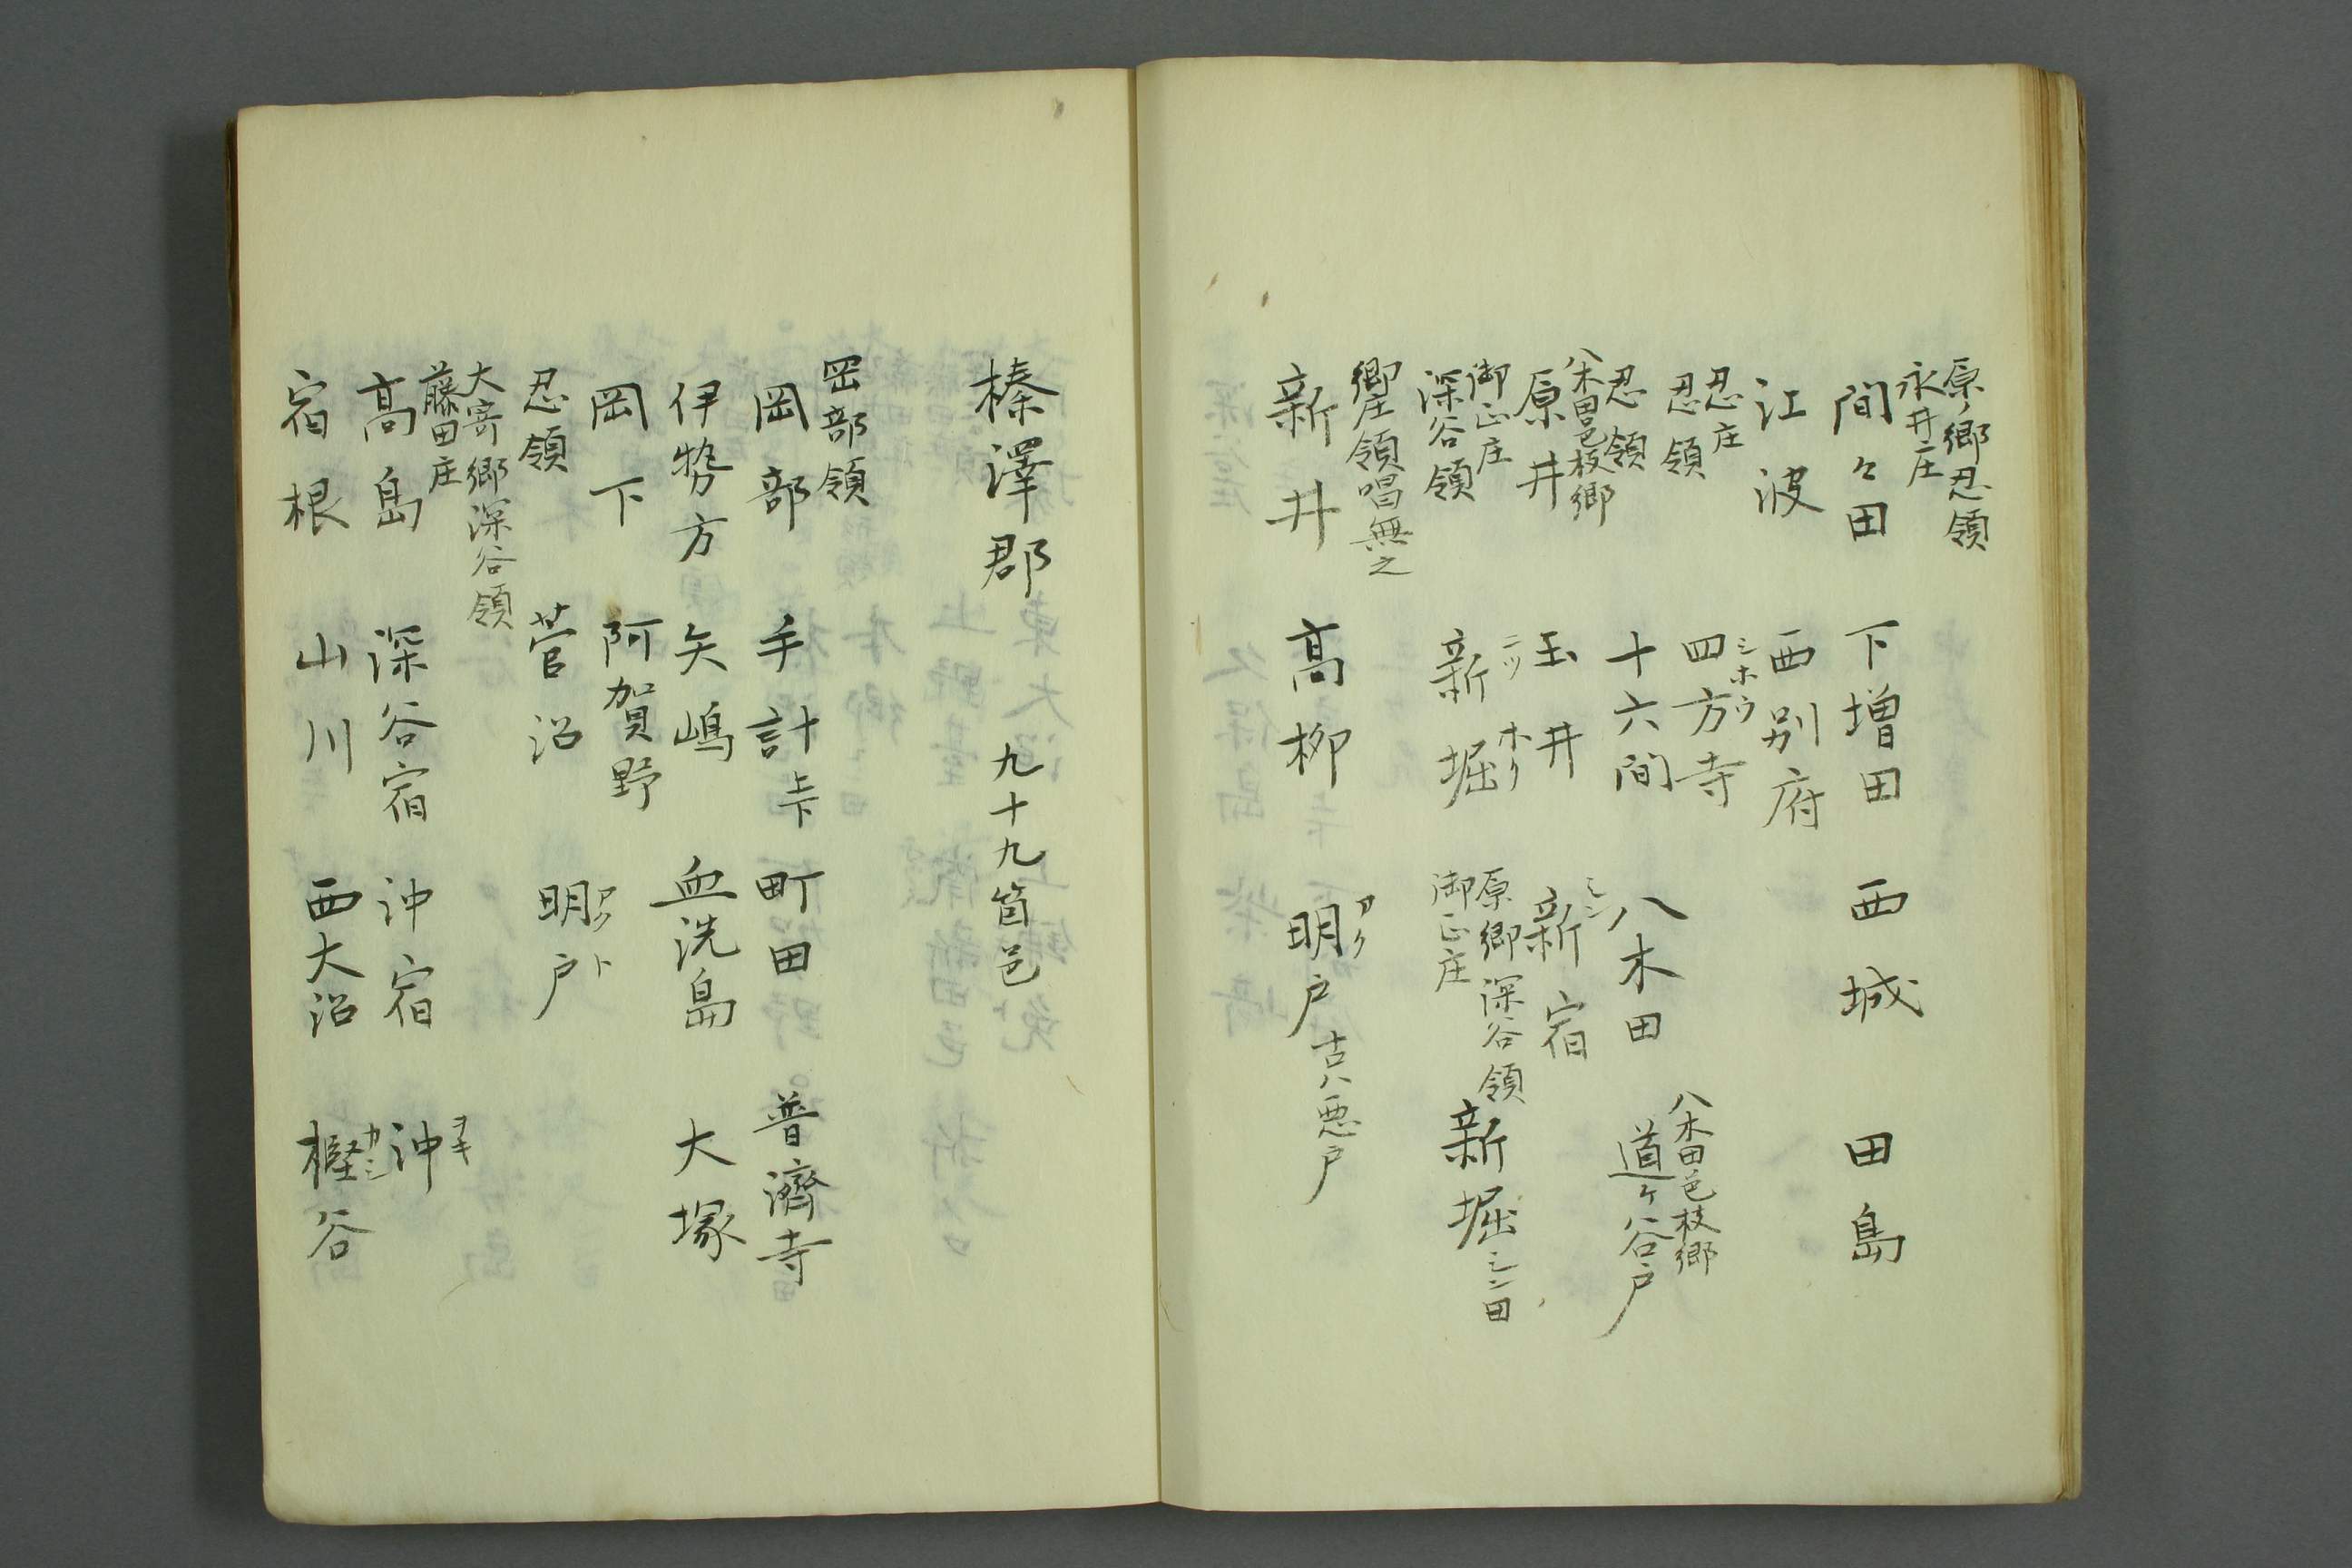 原ノ郷忍領
永井庄
間々田 下増田 西城 田島
江波 西別府
忍庄
忍領 四方寺
シホウ
忍領 十六間 八木田 道ヶ谷戸
八木田邑枝郷
八木田邑枝郷
原井 玉井 新宿
シン
御正庄
深谷領 新堀
ニツ ホリ
原郷深谷領
御正庄
新堀シン田
郷庄領唱無之
新井 高柳 明戸 古ハ悪戸
アク
榛澤郡 九十九箇邑
岡部領
岡部 手計上下 町田 普濟寺
伊勢方 矢嶋 血洗島 大塚
岡下 阿賀野
忍領 菅沼 明戸
アク ト
大寄郷深谷領
藤田庄
高島 深谷宿 沖宿 沖
ヲキ
宿根 山川 西大沼 樫谷
カシ